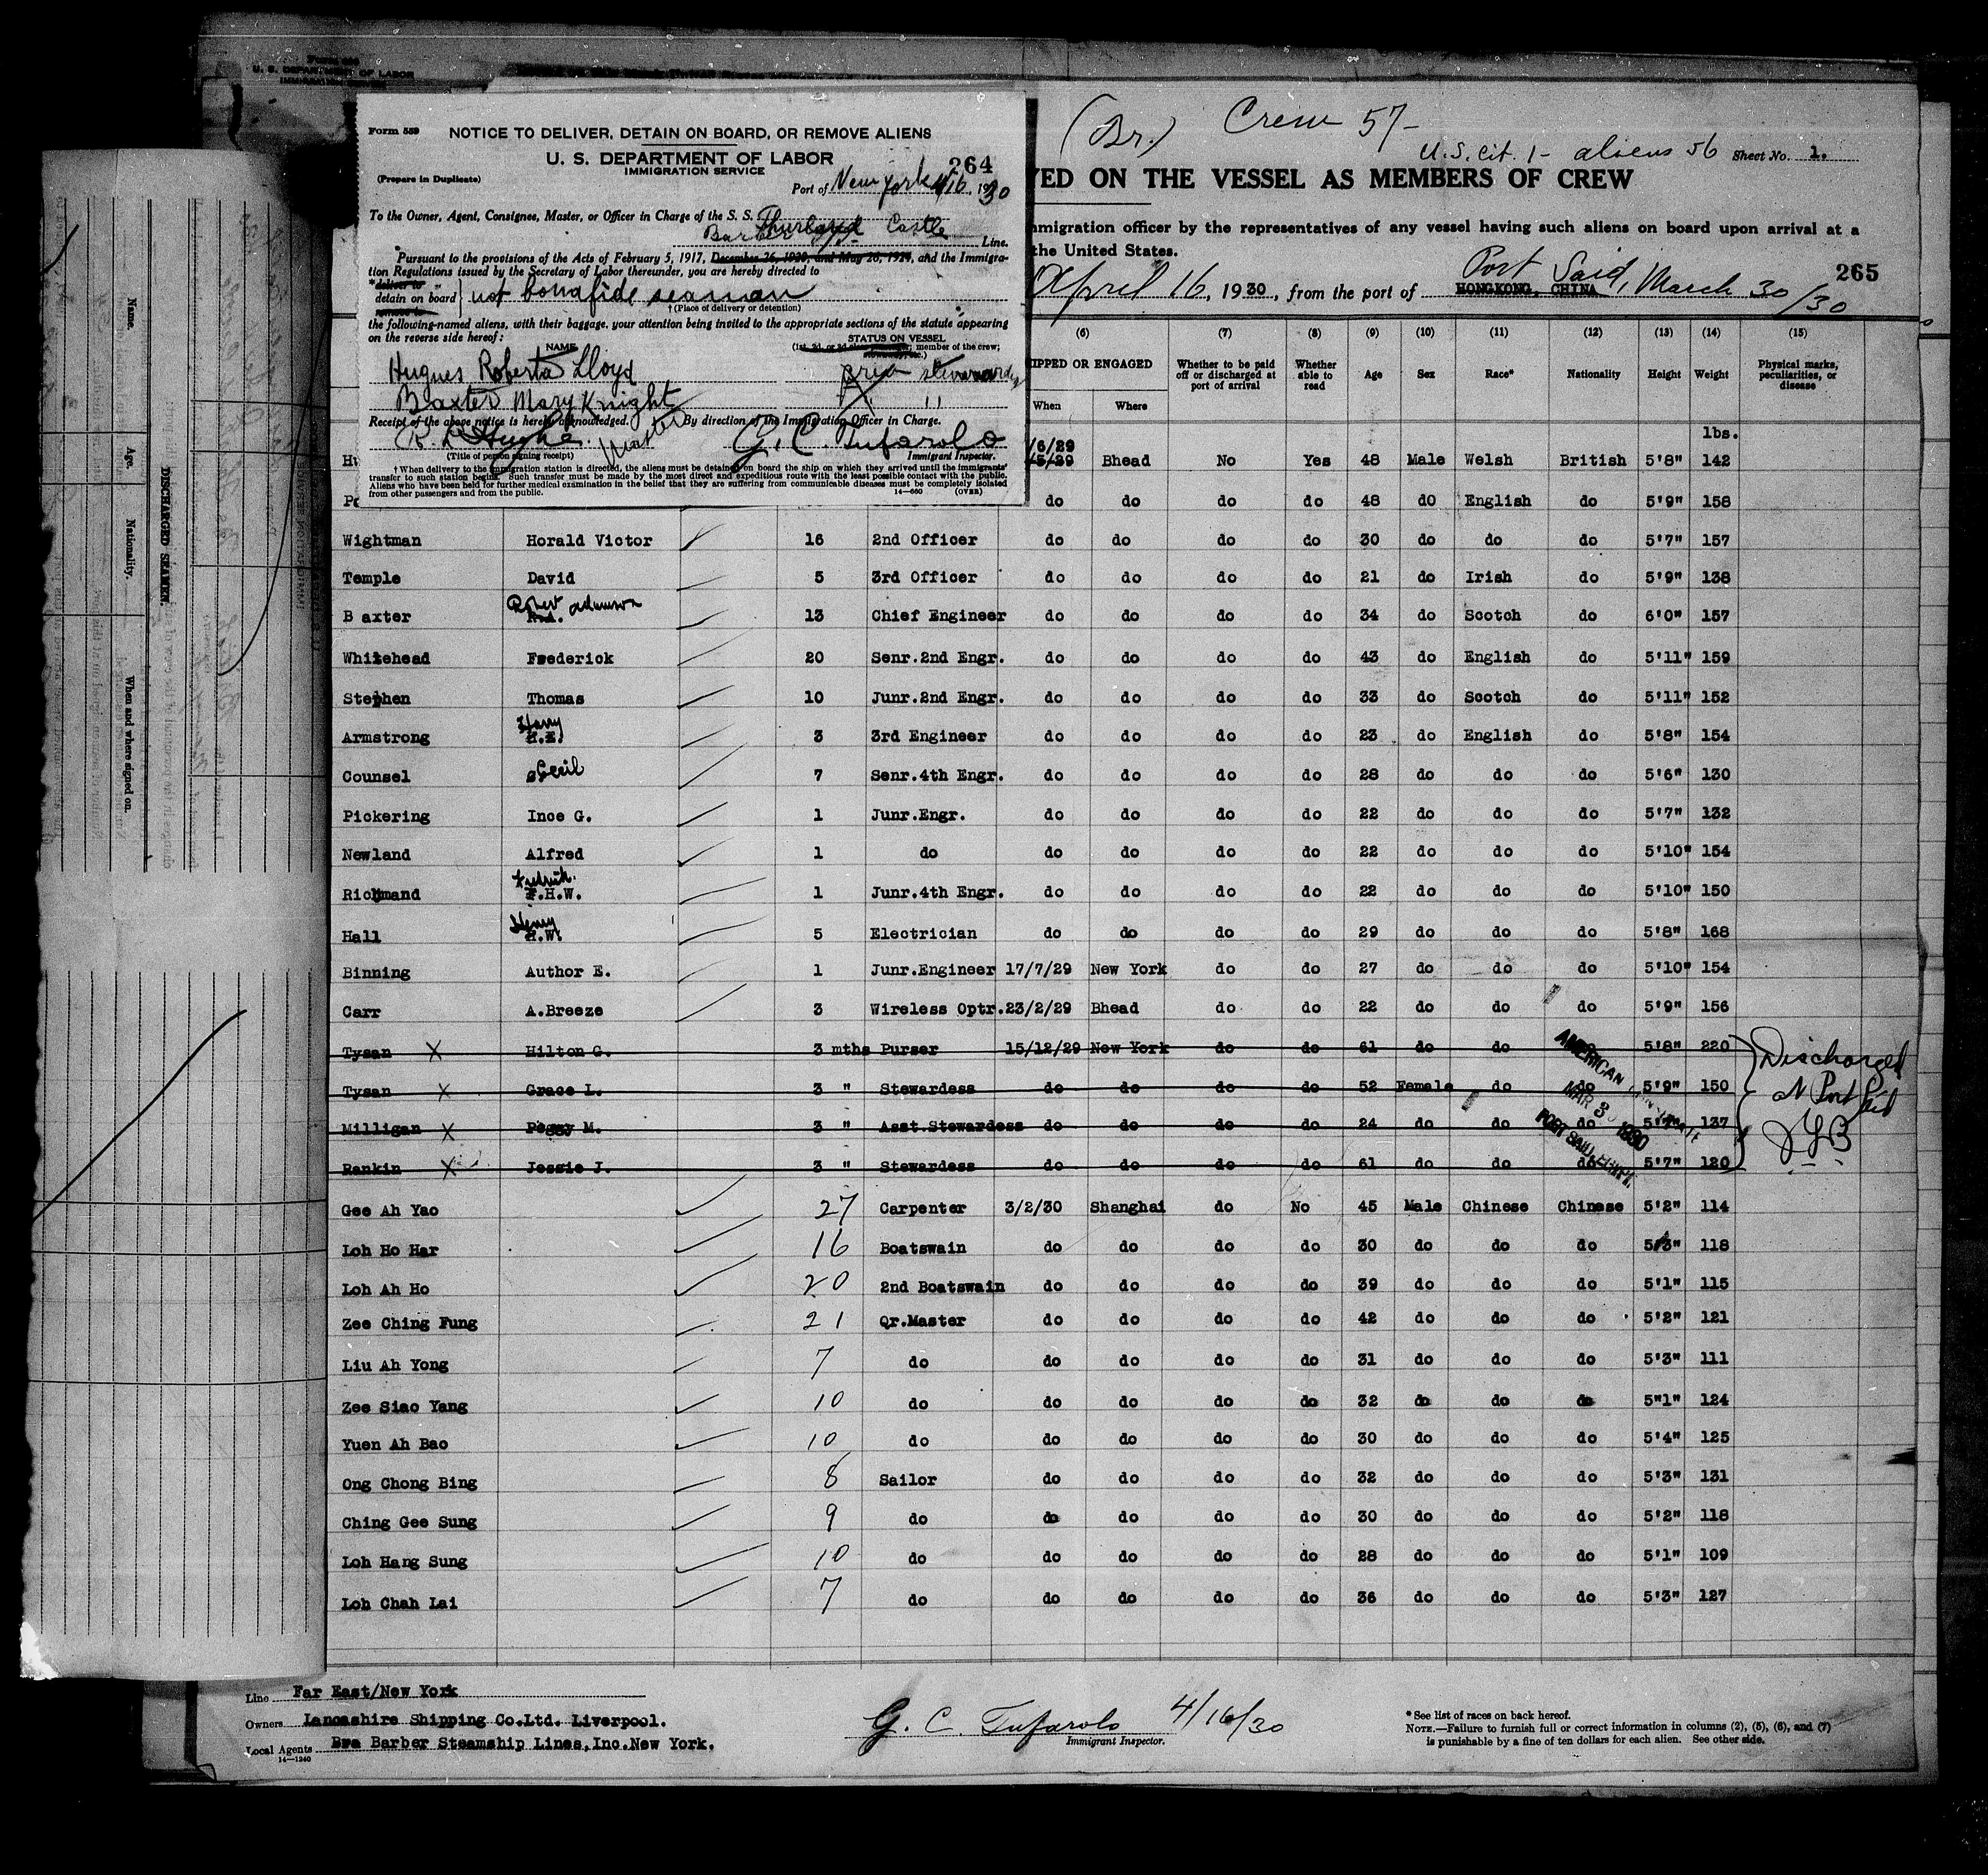 Form 689
U. S. DEPARTMENT OF LABOR
IMMIGRATION
Form 559 NOTICE TO DELIVER, DETAIN ON BOARD, OR REMOVE ALIENS
U. S. DEPARTMENT OF LABOR
IMMIGRATION SERVICE
264
(Prepare in Duplicate)
Port of New York 4/16, 1930
To the Owner, Agent, Consignee, Master, or Officer in Charge of the S. S. Thurland Castle
Barber Line.
Pursuant to the provisions of the Acts of February 5, 1917, December 26, 1920, and May 26, 1924, and the Immigra-
tion Regulations issued by the Secretary of Labor thereunder, you are hereby directed to
*deliver to
detain on board } not bonafide seaman
remove to
†(Place of delivery or detention)
the following-named aliens, with their baggage, your attention being invited to the appropriate sections of the statute appearing
on the reverse side hereof:
NAME STATUS ON VESSEL
(1st, 2d, or 3d class passenger; member of the crew;
stowaway, etc.)
Hugnes Roberta Lloyd stewardess
Baxter Mary Knight " "
Receipt of the above notice is hereby acknowledged. By direction of the Immigration Officer in Charge.
R. L. Hughes. Master G. C. Tufarolo
(Title of person signing receipt) Immigrant Inspector.
†When delivery to the immigration station is directed, the aliens must be detained on board the ship on which they arrived until the immigrants'
transfer to such station begins. Such transfer must be made by the most direct and expeditious route with the least possible contact with the public.
Aliens who have been held for further medical examination in the belief that they are suffering from communicable diseases must be completely isolated
from other passengers and from the public. 14—660 (OVER)
(Br.) Crew 57-
U.S. Cit. 1 - aliens 56 Sheet No. 1.
VED ON THE VESSEL AS MEMBERS OF CREW
mmigration officer by the representatives of any vessel having such aliens on board upon arrival at a
the United States.
April 16, 1930, from the port of HONGKONG, CHINA Port Said, March 30/30
265
(6) (7) (8) (9) (10) (11) (12) (13) (14) (15)
IPPED OR ENGAGED Whether to be paid off or discharged at port of arrival Whether able to read Age Sex Race* Nationality Height Weight Physical marks, peculiarities, or disease
When Where
lbs.
/6/29
/5/29 Bhead No Yes 48 Male Welsh British 5'8" 142
do do do do 48 do English do 5'9" 158
Wightman Horald Victor 16 2nd Officer do do do do 30 do do do 5'7" 157
Temple David 5 3rd Officer do do do do 21 do Irish do 5'9" 138
Baxter R.A. Robert Adamson 13 Chief Engineer do do do do 34 do Scotch do 6'0" 157
Whitehead Frederick 20 Senr.2nd Engr. do do do do 43 do English do 5'11" 159
Stephen Thomas 10 Junr.2nd Engr. do do do do 33 do Scotch do 5'11" 152
Armstrong H.E. Harry 3 3rd Engineer do do do do 23 do English do 5'8" 154
Counsel Cecil 7 Senr.4th Engr. do do do do 28 do do do 5'6" 130
Pickering Ince G. 1 Junr.Engr. do do do do 22 do do do 5'7" 132
Newland Alfred 1 do do do do do 22 do do do 5'10" 154
Richmand F.H.W. 1 Junr.4th Engr. do do do do 22 do do do 5'10" 150
Hall H.W. Henry 5 Electrician do do do do 29 do do do 5'8" 168
Binning Author E. 1 Junr.Engineer 17/7/29 New York do do 27 do do do 5'10" 154
Carr A.Breeze 3 Wireless Optr. 23/2/29 Bhead do do 22 do do do 5'9" 156
Tysan X Hilton G. 3 mths Purser 15/12/29 New York do do 61 do do do 5'8" 220
Tysan X Grace L. 3 " Stewardess do do do do 52 Female do do 5'9" 150
Milligan X Peggy M. 3 " Asst.Stewardess do do do do 24 do do do 5'7" 137
Rankin X Jessie J. 3 " Stewardess do do do do 61 do do do 5'7" 120
Discharged
at Port Said
AMERICAN CONSULATE
MAR 30 1930
PORT SAID, EGYPT.
Gee Ah Yao 27 Carpenter 3/2/30 Shanghai do No 45 Male Chinese Chinese 5'2" 114
Loh Ho Har 16 Boatswain do do do do 30 do do do 5'3" 118
Loh Ah Ho 20 2nd Boatswain do do do do 39 do do do 5'1" 115
Zee Ching Fung 21 Qr.Master do do do do 42 do do do 5'2" 121
Liu Ah Yong 7 do do do do do 31 do do do 5'3" 111
Zee Siao Yang 10 do do do do do 32 do do do 5"1" 124
Yuen Ah Bao 10 do do do do do 30 do do do 5'4" 125
Ong Chong Bing 8 Sailor do do do do 32 do do do 5'3" 131
Ching Gee Sung 9 do do do do do 30 do do do 5'2" 118
Loh Hang Sung 10 do do do do do 28 do do do 5'1" 109
Loh Chah Lai 7 do do do do do 36 do do do 5'3" 127
Line Far East/New York
Owners Lancashire Shipping Co.Ltd. Liverpool.
Local Agents Barber Steamship Lines,Inc.New York.
14—1240
G. C. Tufarolo 4/16/30
Immigrant Inspector.
* See list of races on back hereof.
NOTE.—Failure to furnish full or correct information in columns (2), (5), (6), and (7)
is punishable by a fine of ten dollars for each alien. See other side.
DISCHARGED SEAMEN.
Name. Age. Nationality. When and where signed on.